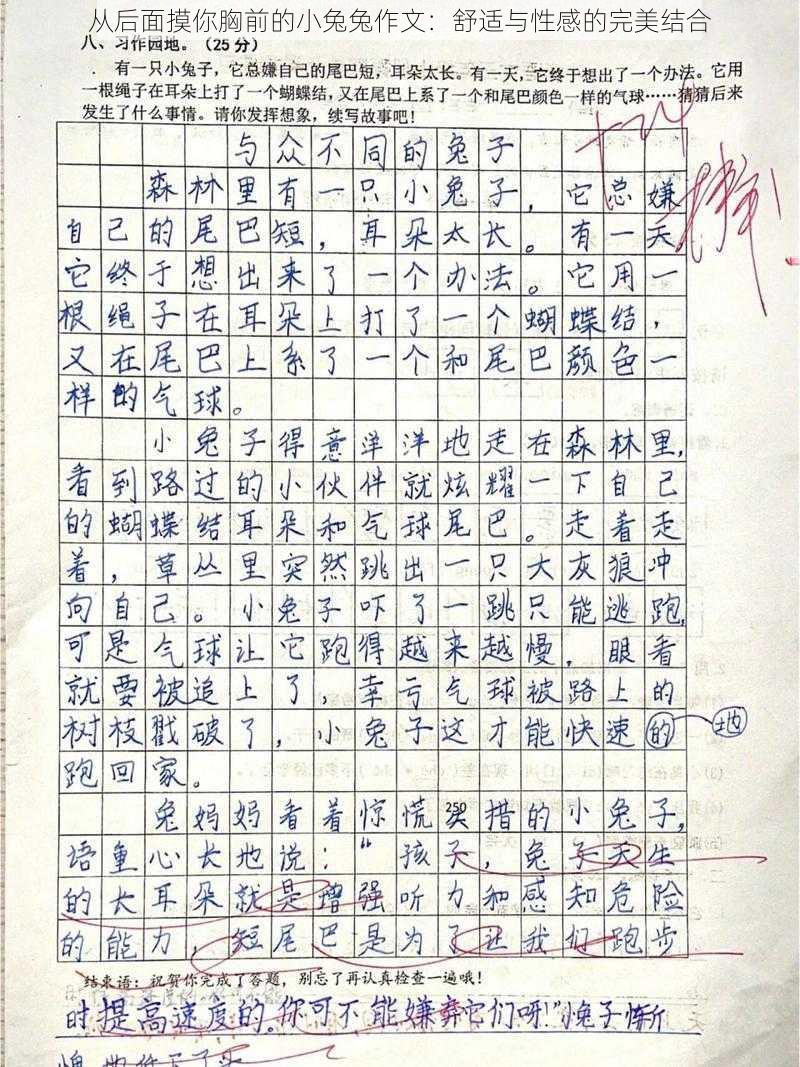 从后面摸你胸前的小兔兔作文：舒适与性感的完美结合
八、习作园地。（25分）
有一只小兔子，它总嫌自己的尾巴短，耳朵太长。有一天，它终于想出了一个办法。它用
一根绳子在耳朵上打了一个蝴蝶结，又在尾巴上系了一个和尾巴颜色一样的气球……猜猜后来
发生了什么事情。请你发挥想象，续写故事吧！
与众不同的兔子
森林里有一只小兔子，它总嫌
自己的尾巴短，耳朵太长。有一天
它终于想出来了一个办法。它用一
根绳子在耳朵上打了一个蝴蝶结，
又在尾巴上系了一个和尾巴颜色一
样的气球。
小兔子得意洋洋地走在森林里，
看到路过的小伙伴就炫耀一下自己
的蝴蝶结耳朵和气球尾巴。走着走
着，草丛里突然跳出一只大灰狼冲
向自己。小兔子吓了一跳只能逃跑，
可是气球让它跑得越来越慢，眼看
就要被追上了，幸亏气球被路上的
树枝戳破了，小兔子这才能快速的 地
跑回家。
兔妈妈看着惊慌失措的小兔子，
250
语重心长地说：“孩子，兔子天生
的长耳朵就是增强听力和感知危险
的能力，短尾巴是为了让我们跑步
结束语：祝贺你完成了答题，别忘了再认真检查一遍哦！
时提高速度的。你可不能嫌弃它们呀！”小兔子惭
愧地低下了头